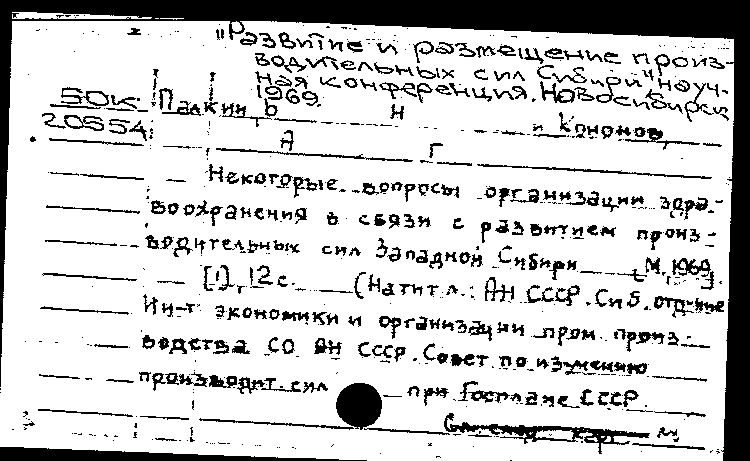 "Развитие и размещение произ-
водительных сил Сибири", науч-
ная конференция. Новосибирск
1969.
50к Палкин Ь Н и Кононов,
20554 А Г
Некоторые вопросы организации здра-
воохранения в связи с развитием произ-
водительных сил Западной Сибири [М, 1969].
[1], 12 с. (На тит л.: АН СССР. Сиб. отд-ние
Ин-т экономики и организации пром произ-
водства СО АН СССР. Совет по изучению
производит. сил при Госплане СССР.